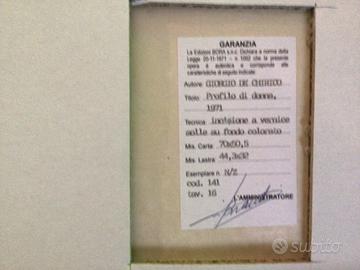 GARANZIA
La Edizioni BORA s.n.c. Dichiara a norma della
Legge 20-11-1971 - n. 1062 che la presente
opera è autentica e corrisponde alle
caratteristiche di seguito indicate:
Autore: GIORGIO DE CHIRICO
Titolo: Profilo di donna,
1971
Tecnica: incisione a vernice
molle su fondo colorato
Mis. Carta 70x50,5
Mis. Lastra 44,3x32
Esemplare n. N/Z
cod. 141
tav. 16
L'AMMINISTRATORE
subito